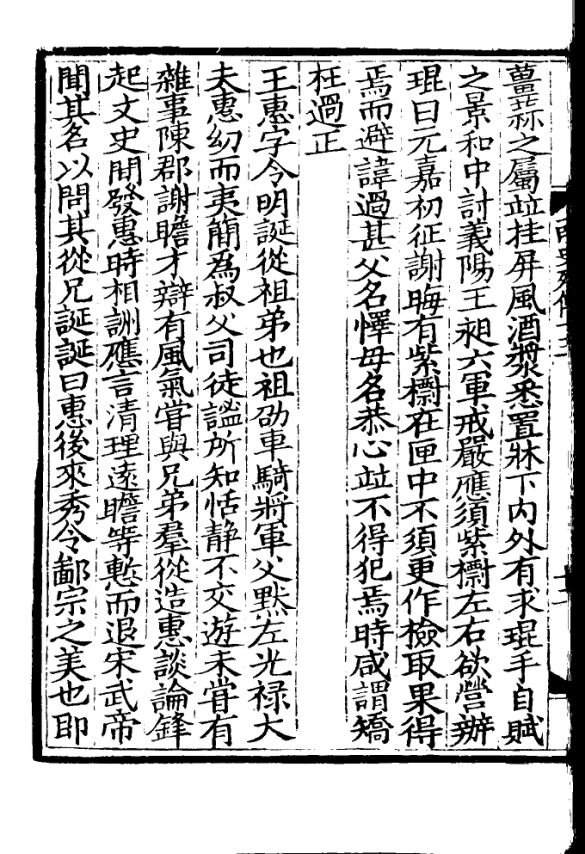 薑蒜之屬竝挂屏風酒漿悉置牀下內外有求琨手自賦
之景和中討義陽王昶六軍戒嚴應須紫檦左右欲營辦
琨曰元嘉初征謝晦有紫檦在匣中不須更作檢取果得
焉而避諱過甚父名懌母名恭心竝不得犯焉時咸謂矯
枉過正
王惠字令明誕從祖弟也祖劭車騎將軍父黙左光禄大
夫惠幼而夷簡爲叔父司徒謐所知恬静不交遊未甞有
雜事陳郡謝瞻才辯有風氣甞與兄弟羣從造惠談論鋒
起文史間發惠時相詶應言清理遠瞻等慙而退宋武帝
聞其名以問其從兄誕誕曰惠後來秀令鄙宗之美也即